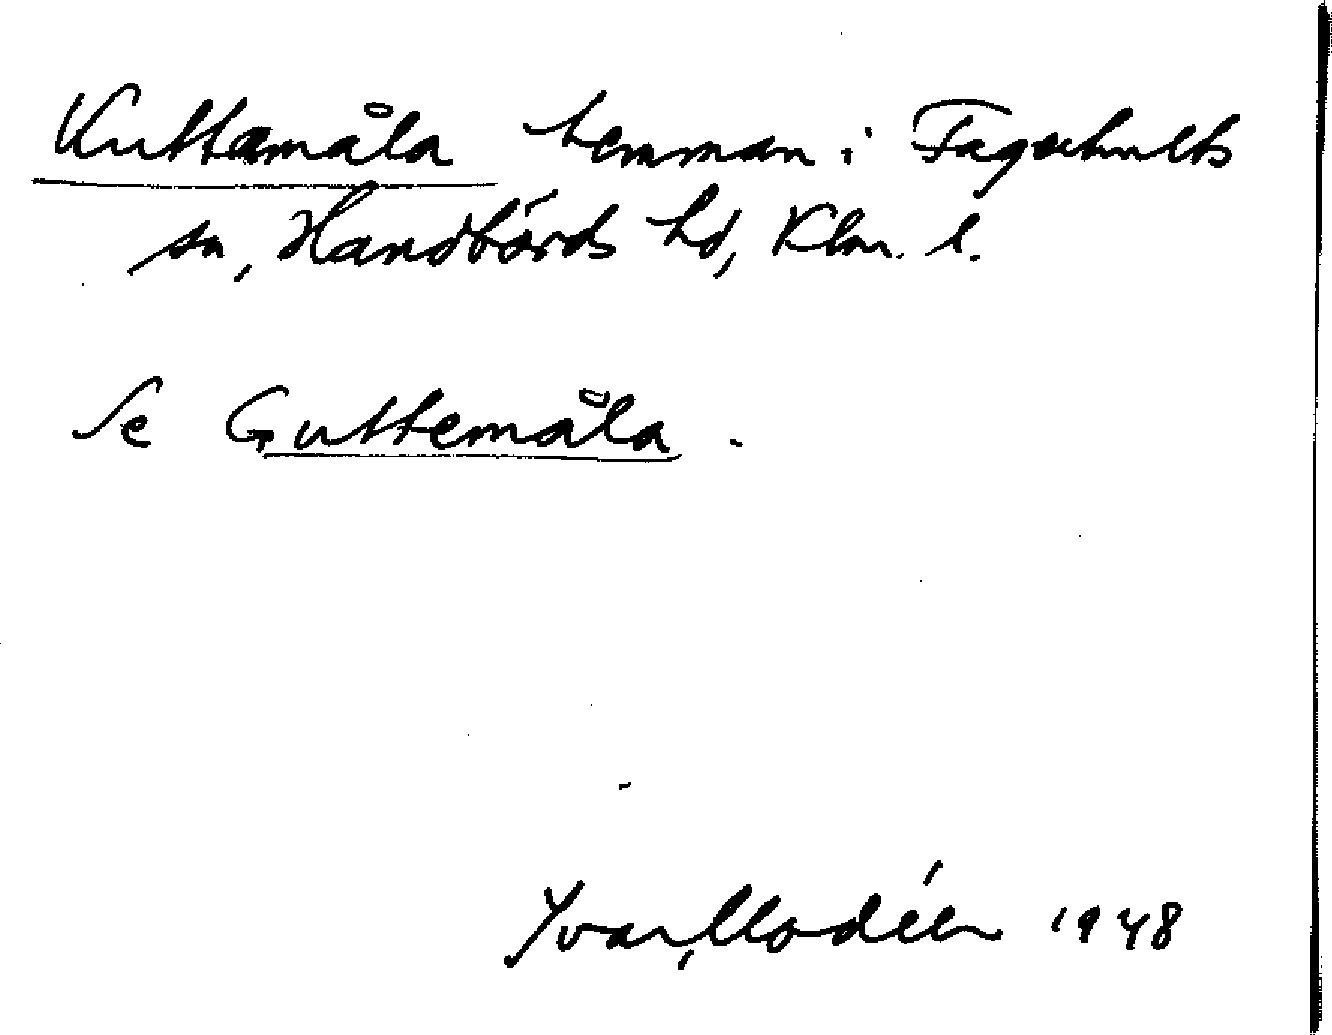 Kuttamåla hemman i Fagerhults
sn, Handbörds hd, Klm. l.
Se Guttemåla.
Yvar Modéer 1948